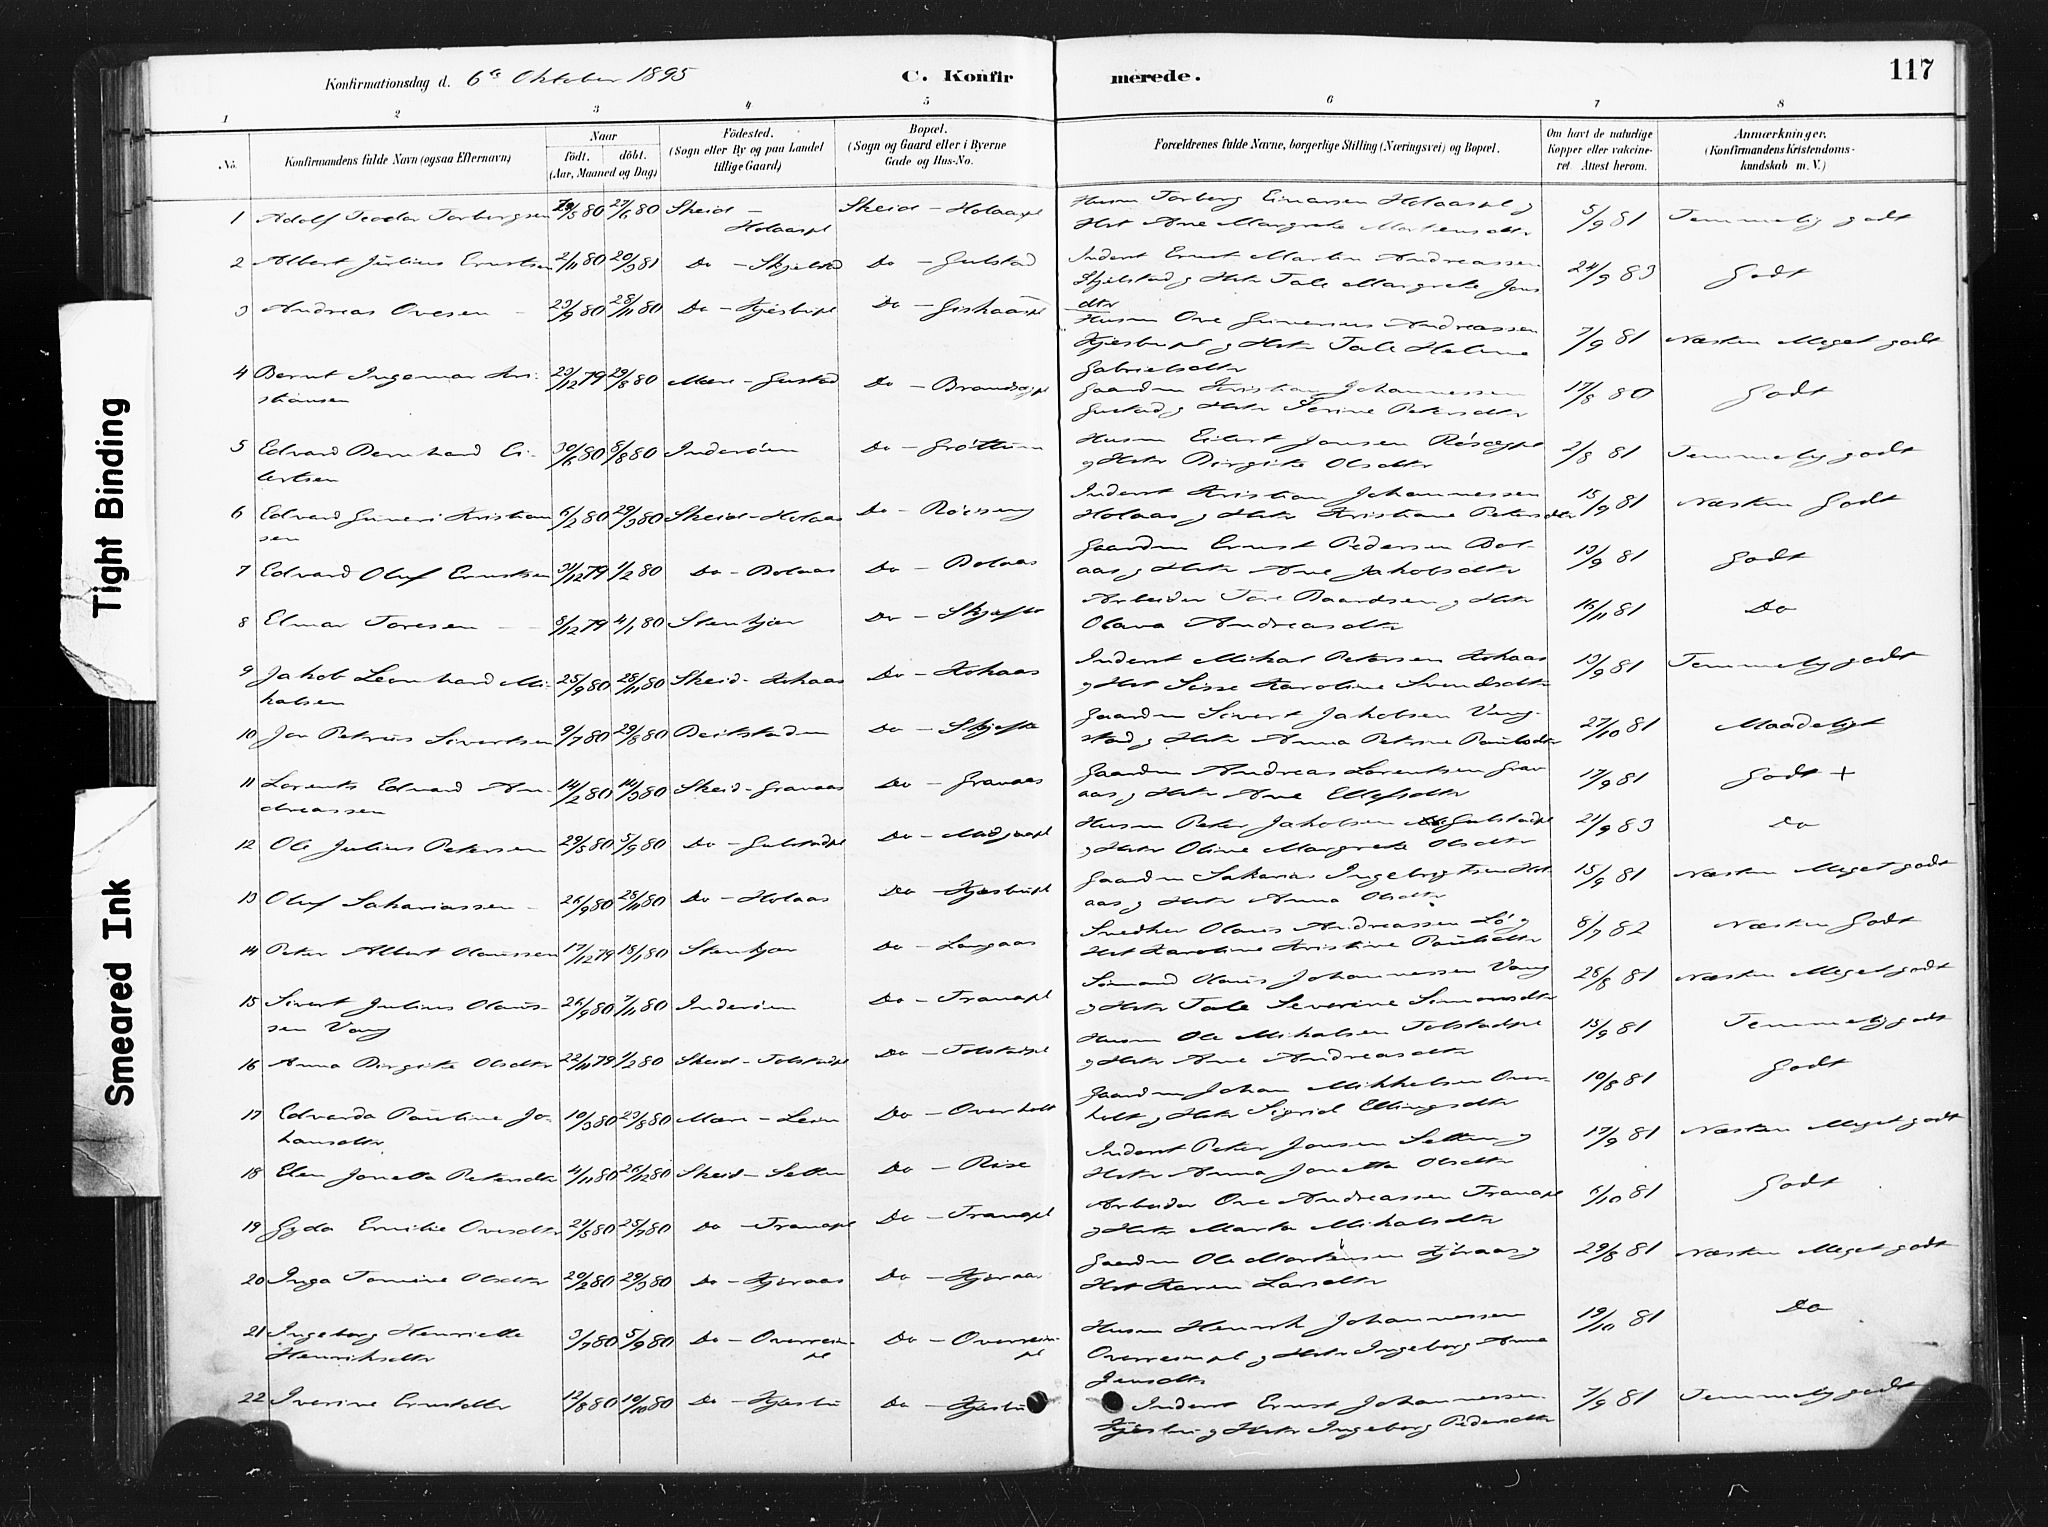 Konfirmationsdag d. 6te Oktober 1895 C. Konfirmerede. 117
1 2 3 4 5 6 7 8
No. Konfirmandens fulde Navn (ogsaa Efternavn) Naar födt. döbt. (Aar, Maaned og Dag) Födested. (Sogn eller By og paa Landet tillige Gaard) Bopæl. (Sogn og Gaard eller i Byerne Gade og Hus-No. Forældrenes fulde Navne, borgerlige Stilling (Næringsvei) og Bopæl. Om havt de naturlige Kopper eller vaccineret. Attest herom. Anmærkninger. (Konfirmandens Kristendomskundskab m. V.)
1 Adolf Teodor Torbergsen 27/6 80 Skeid – Holaaspl Skeid – Holaaspl Husm Torberg Einarsen Holaaspl og Hst Ane Margrete Mortensdtr 5/9 81 Temmelig godt
2 Albert Julius Ernstsen 2/11 80 20/3 81 Do – Skjelstad Do – Gulstad Inderst Ernst Martin Andreassen Skjelstad og Hstr Tale Margrete Jonsdtr 24/9 83 Godt
3 Andreas Ovesen 23/9 80 28/11 80 Do – Kjesbupl Do – Husm Ove Andreassen Kjesbupl og Hstr Tale Helene Gabrielsdtr 7/9 81 Næsten Meget godt
4 Bernt Ingemar Kristiansen 23/12 79 29/8 80 Mære – Gustad Do – Gaardm Kristian Johannessen Gustad og Hstr Serine Petersdtr 17/8 80 Godt
5 Edvard Bernhard Eilertsen 30/6 80 8/8 80 Inderöen Do – Gröttum Husm Eilert Jonsen og Hstr Birgitte Olsdtr 2/8 81 Temmelig godt
6 Edvard Kristiansen 6/2 80 29/3 80 Skeid – Holaas Do – Röiseng Inderst Kristian Johannessen Holaas og Hstr Kristiane Petersdtr 15/9 81 Næsten Godt
7 Edvard Oluf Ernstsen 31/12 79 1/2 80 Do – Bolaas Do – Bolaas Gaardm Ernst Pedersen Bolaas og Hstr Ane Jakobsdtr 13/9 81 Godt
8 Elmar Toresen 8/12 79 4/1 80 Stenkjær Do – Skjefte Arbeider Tore Baardsen og Hstr Olava Andreasdtr 16/11 81 Do
9 Jakob Leonhard Mikalsen 25/9 80 28/11 80 Skeid – Do – Inderst Mikal Petersen og Hst Sisse Karoline Svendsdtr 13/9 81 Temmelig godt
10 Jon Petrus Sivertsen 9/7 80 29/8 80 Beitstaden Do – Skjefte Gaardm Sivert Jakobsen Vangstad og Hstr Anna Petrine Paulsdtr 27/10 81 Maadeligt
11 Lorents Edvard Andreassen 14/2 80 14/3 80 Skeid – Granaas Do – Granaas Gaardm Andreas Lorentsen Granaas og Hstr Ane Ellefsdtr 17/9 81 Godt +
12 Ole Julius Petersen 29/5 80 5/9 80 Do – Gulstadpl Do – Husm Peter Jakobsen Gulstadpl og Hstr Oline Margrete Olsdtr 21/9 83 Do
13 Oluf Sakariassen 26/9 80 28/11 80 Do – Holaas Do – Kjesbupl Gaardm Sakarias Ingebrigtsen Holaas og Hstr Anna Olsdtr 15/9 81 Næsten Meget godt
14 Peter Albert Olaussen 17/12 79 18/1 80 Stenkjær Do – Langaas Snedker Olaus Andreassen Lö og Hst Karoline Kristine Paulsdtr 8/7 82 Næsten Godt
15 Sivert Julius Olaussen Vang 26/9 80 7/11 80 Inderöen Do – Tranapl Sömand Olaus Johannessen Vang og Hstr Tale Severine Simonsdtr 26/8 81 Næsten Meget godt
16 Anna Birgitte Olsdtr 22/11 79 1/2 80 Skeid – Tolstadpl Do – Tolstadpl Husm Ole Mikalsen Tolstadpl og Hstr Ane Andreasdtr 15/9 81 Temmelig godt
17 Edvarda Pauline Johansdtr 10/3 80 23/8 80 Mære – Do – Overholt Gaardm Johan Mikkelsen Overholt og Hstr Sigrid Ellingsdtr 10/8 81 Godt
18 Elen Jonetta Petersdtr 4/11 80 26/12 80 Skeid – Setten Do – Rise Inderst Peter Jonsen Setten og Hstr Anna Jonetta Olsdtr 17/9 81 Næsten Meget godt
19 Gyda Emilie Ovesdtr 21/5 80 25/7 80 Do – Tranapl Do – Tranapl Arbeider Ove Andreassen Tranapl og Hstr Marta Mikalsdtr 6/10 81 Godt
20 Inga Tomine Olsdtr 29/2 80 29/3 80 Do – Kjöraas Do – Kjöraas Gaardm Ole Mortensen Kjöraas og Hst Karen Larsdtr 29/8 81 Næsten Meget godt
21 Ingeborg Henriette Henriksdtr 3/7 80 5/9 80 Do – Overreinpl Do – Overreinpl Husm Henrik Johannessen Overreinpl og Hstr Ingeborg Anna Jensdtr 19/10 81 Do
22 Iverine Ernstdtr 12/8 80 10/10 80 Do – Kjesbu Do – Kjesbu Inderst Ernst Johannessen Kjesbu og Hstr Ingeborg Pedersdtr 7/9 81 Temmelig godt
Tight Binding
Smeared Ink